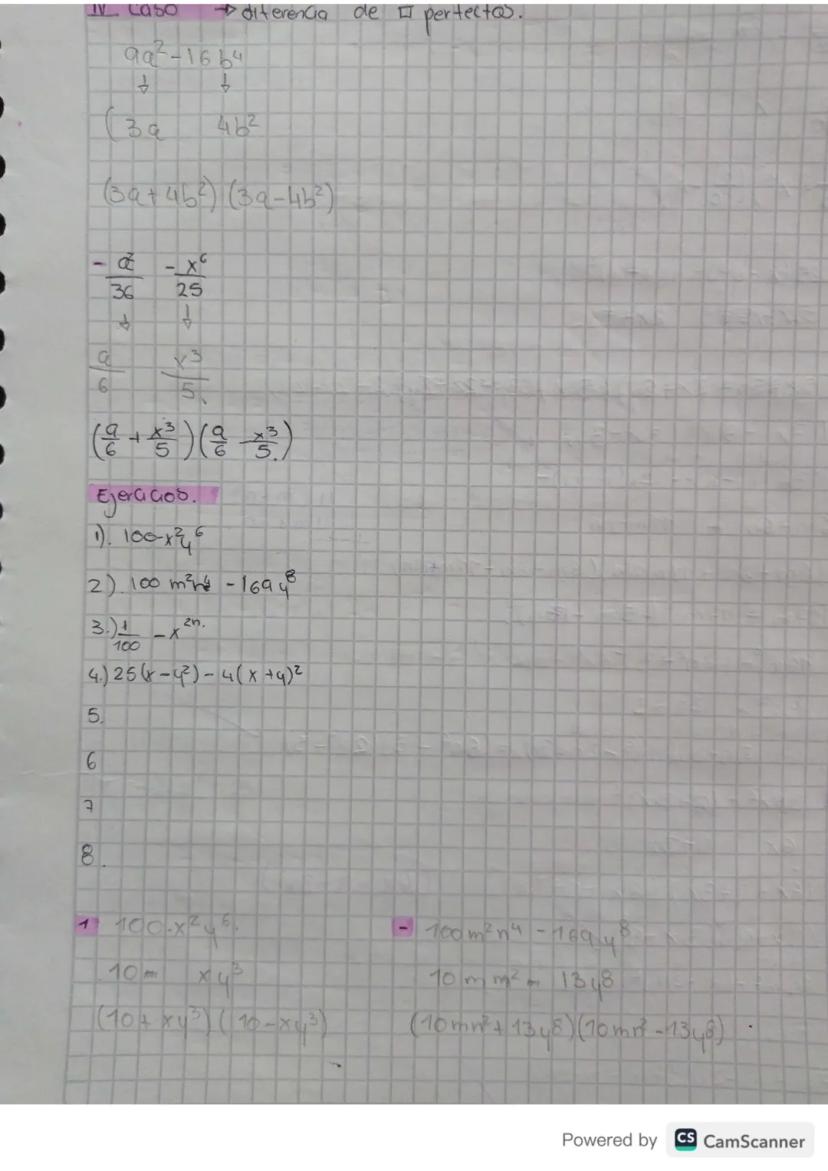 IV Caso → diferencia de □ perfectos.
9a² - 16b⁴
↓ ↓
(3a 4b²
(3a + 4b²) (3a - 4b²)
- a²/36 - x⁶/25
↓ ↓
a/6 x³/5.
(a/6 + x³/5) (a/6 - x³/5.)
Ejercicios.
1). 100-x²y⁶
2). 100 m²n⁴ - 169 y⁸
3.) 1/100 - x²ⁿ.
4.) 25(x-y²) - 4(x+y)²
5.
6
7
8.
1 100-x²y⁶.
10 - xy³
(10 + xy³) (10 - xy³)
- 100m²n⁴ - 169y⁸
10 m m² - 13y⁸
(10mn² + 13y⁸) (10mn² - 13y⁸)
Powered by CS CamScanner